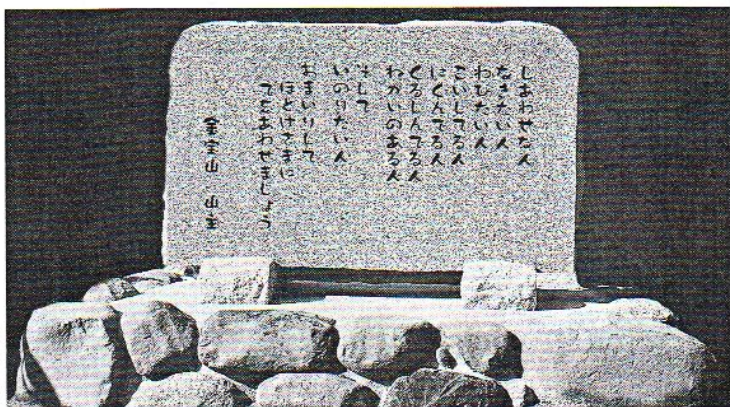 しあわせな人
なきたい人
わびたい人
こいしてる人
にくんでる人
くるしんでる人
ねがいのある人
そして
いのりたい人
おまいりして
ほとけさまに
てをあわせましょう
金宝山 山主